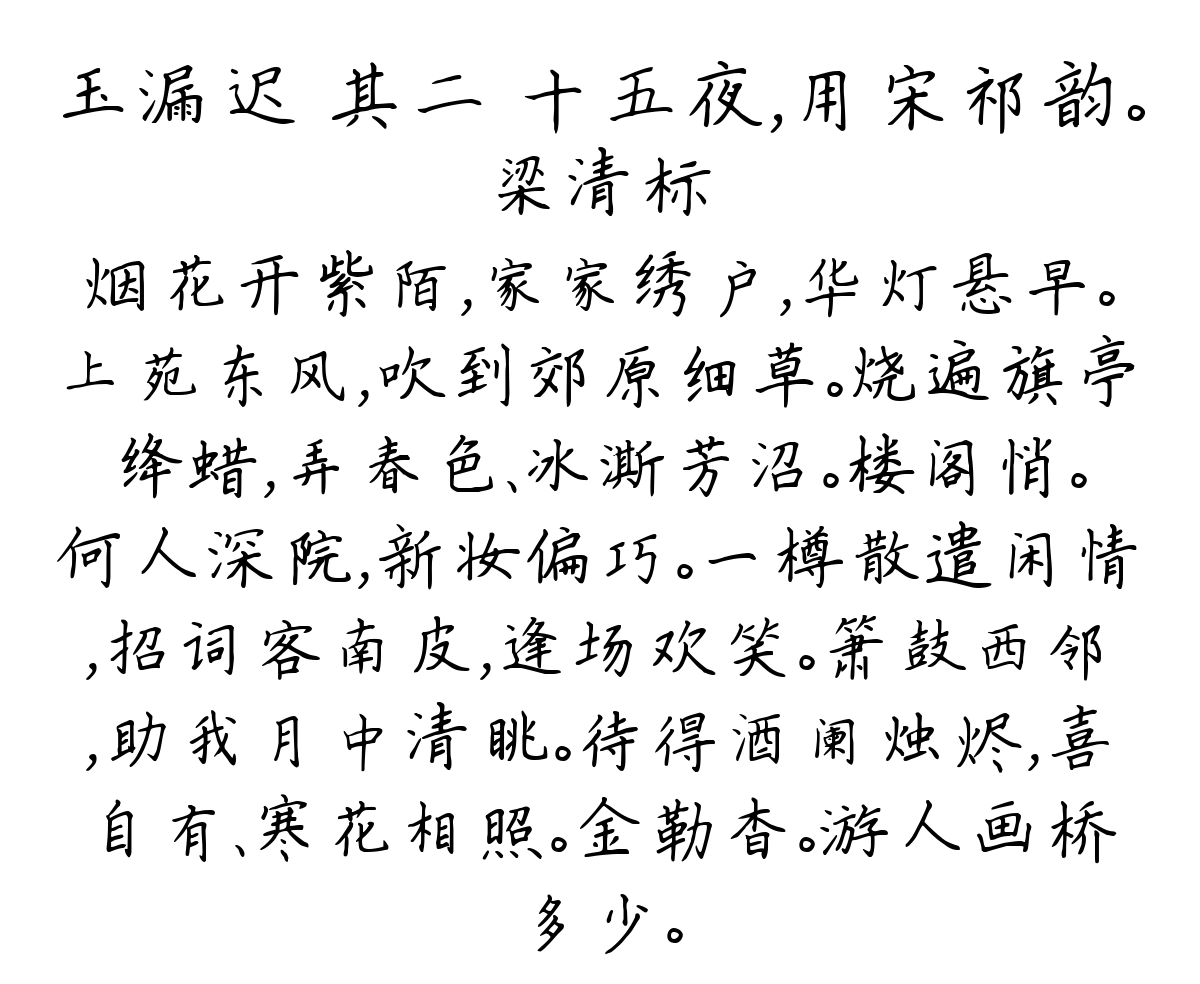 玉漏迟 其二 十五夜,用宋祁韵。
梁清标
烟花开紫陌,家家绣户,华灯悬早。
上苑东风,吹到郊原细草。烧遍旗亭
绛蜡,弄春色、冰澌芳沼。楼阁悄。
何人深院,新妆偏巧。一樽散遣闲情
,招词客南皮,逢场欢笑。箫鼓西邻
,助我月中清眺。待得酒阑烛烬,喜
自有、寒花相照。金勒杳。游人画桥
多少。